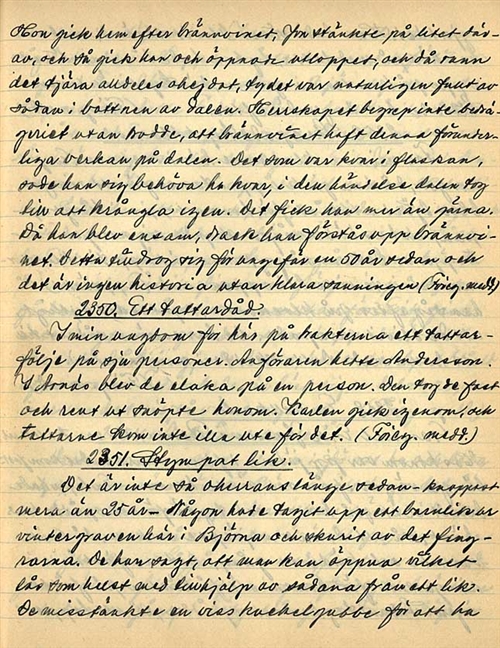 Hon gick hem efter brännvinet, fru stänkte på litet där-
av, och så gick han och öppnade utloppet, och då rann
det tjära alldeles ohejdat, ty det var naturligen fullt av
sådan i bottnen av dalen. Herrskapet begrep inte bedrä-
geriet utan trodde, att brännvinet haft denna förunder-
liga verkan på dalen. Det som var kvar i flaskan,
sade han sig behöva ha kvar, i den händelse dalen tog
till att krångla igen. Det fick han mer än gärna.
Då han blev ensam, drack han förstås upp brännvi-
net. Detta tilldrog sig för ungefär en 50 år sedan och
det är ingen historia utan klara sanningen (Föreg. medd.)
2350. Ett tattardåd.
I min ungdom for här på trakterna ett tattar-
följe på sju personer. Anföraren hette Andersson.
I Arnäs blev de elaka på en person. Den tog de fast
och rent ut snöpte honom. Karlen gick igenom, och
tattarne kom inte illa ute för det. (Föreg. medd.)
2351. Stympat lik.
Det är inte så oherrans länge sedan - knappast
mera än 25 år - Någon hade tagit upp ett barnlik ur
vintergraven här i Björna och skurit av det fing-
rarna. De han sagt, att man kan öppna vilket
lås som helst med tillhjälp av sådana från ett lik.
De misstänkte en viss gubbe för att ha